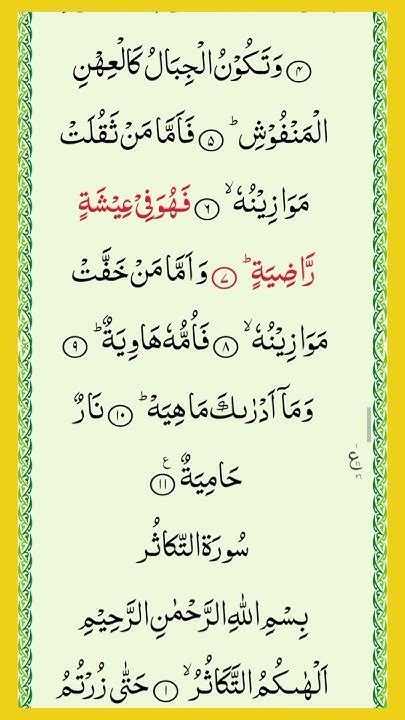 ۴ وَتَكُوْنُ الْجِبَالُ كَالْعِهْنِ
الْمَنْفُوْشِ ؕ ۵ فَاَمَّا مَنْ ثَقُلَتْ
مَوَازِيْنُهٗ ۙ ۶ فَهُوَ فِيْ عِيْشَةٍ
رَّاضِيَةٍ ؕ ۷ وَاَمَّا مَنْ خَفَّتْ
مَوَازِيْنُهٗ ۙ ۸ فَاُمُّهٗ هَاوِيَةٌ ؕ ۹
وَمَاۤ اَدْرٰىكَ مَا هِيَهْ ؕ ۱۰ نَارٌ
حَامِيَةٌ ۱۱ ع
سُورَة التَّكَاثُر
بِسْمِ اللهِ الرَّحْمٰنِ الرَّحِيْمِ
اَلْهٰىكُمُ التَّكَاثُرُ ۙ ۱ حَتّٰى زُرْتُمُ